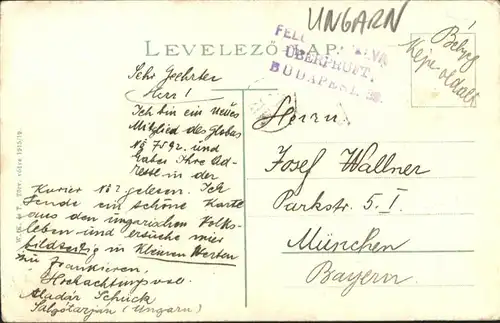 UNGARN
LEVELEZŐ-LAP
ÜBERPRÜFT.
BUDAPEST.
Bélyeg
képe oldalt
Sehr Geehrter
Herr!
Ich bin ein neues
Mitglied des Globus
No 7592. und
habe Ihre Ad-
resse in der
Kurier No 2 gelesen. Ich
sende ein schöne Karte
aus den ungarischen Volks-
leben und ersuche mier
bildseitig in kleinen Werten
zu frankieren,
Hochachtungsvoll
Aladár Schück
Salgótarján (Ungarn)
Herrn
Josef Wallner
Parkstr. 5. I
München
Bayern.
1915/19.